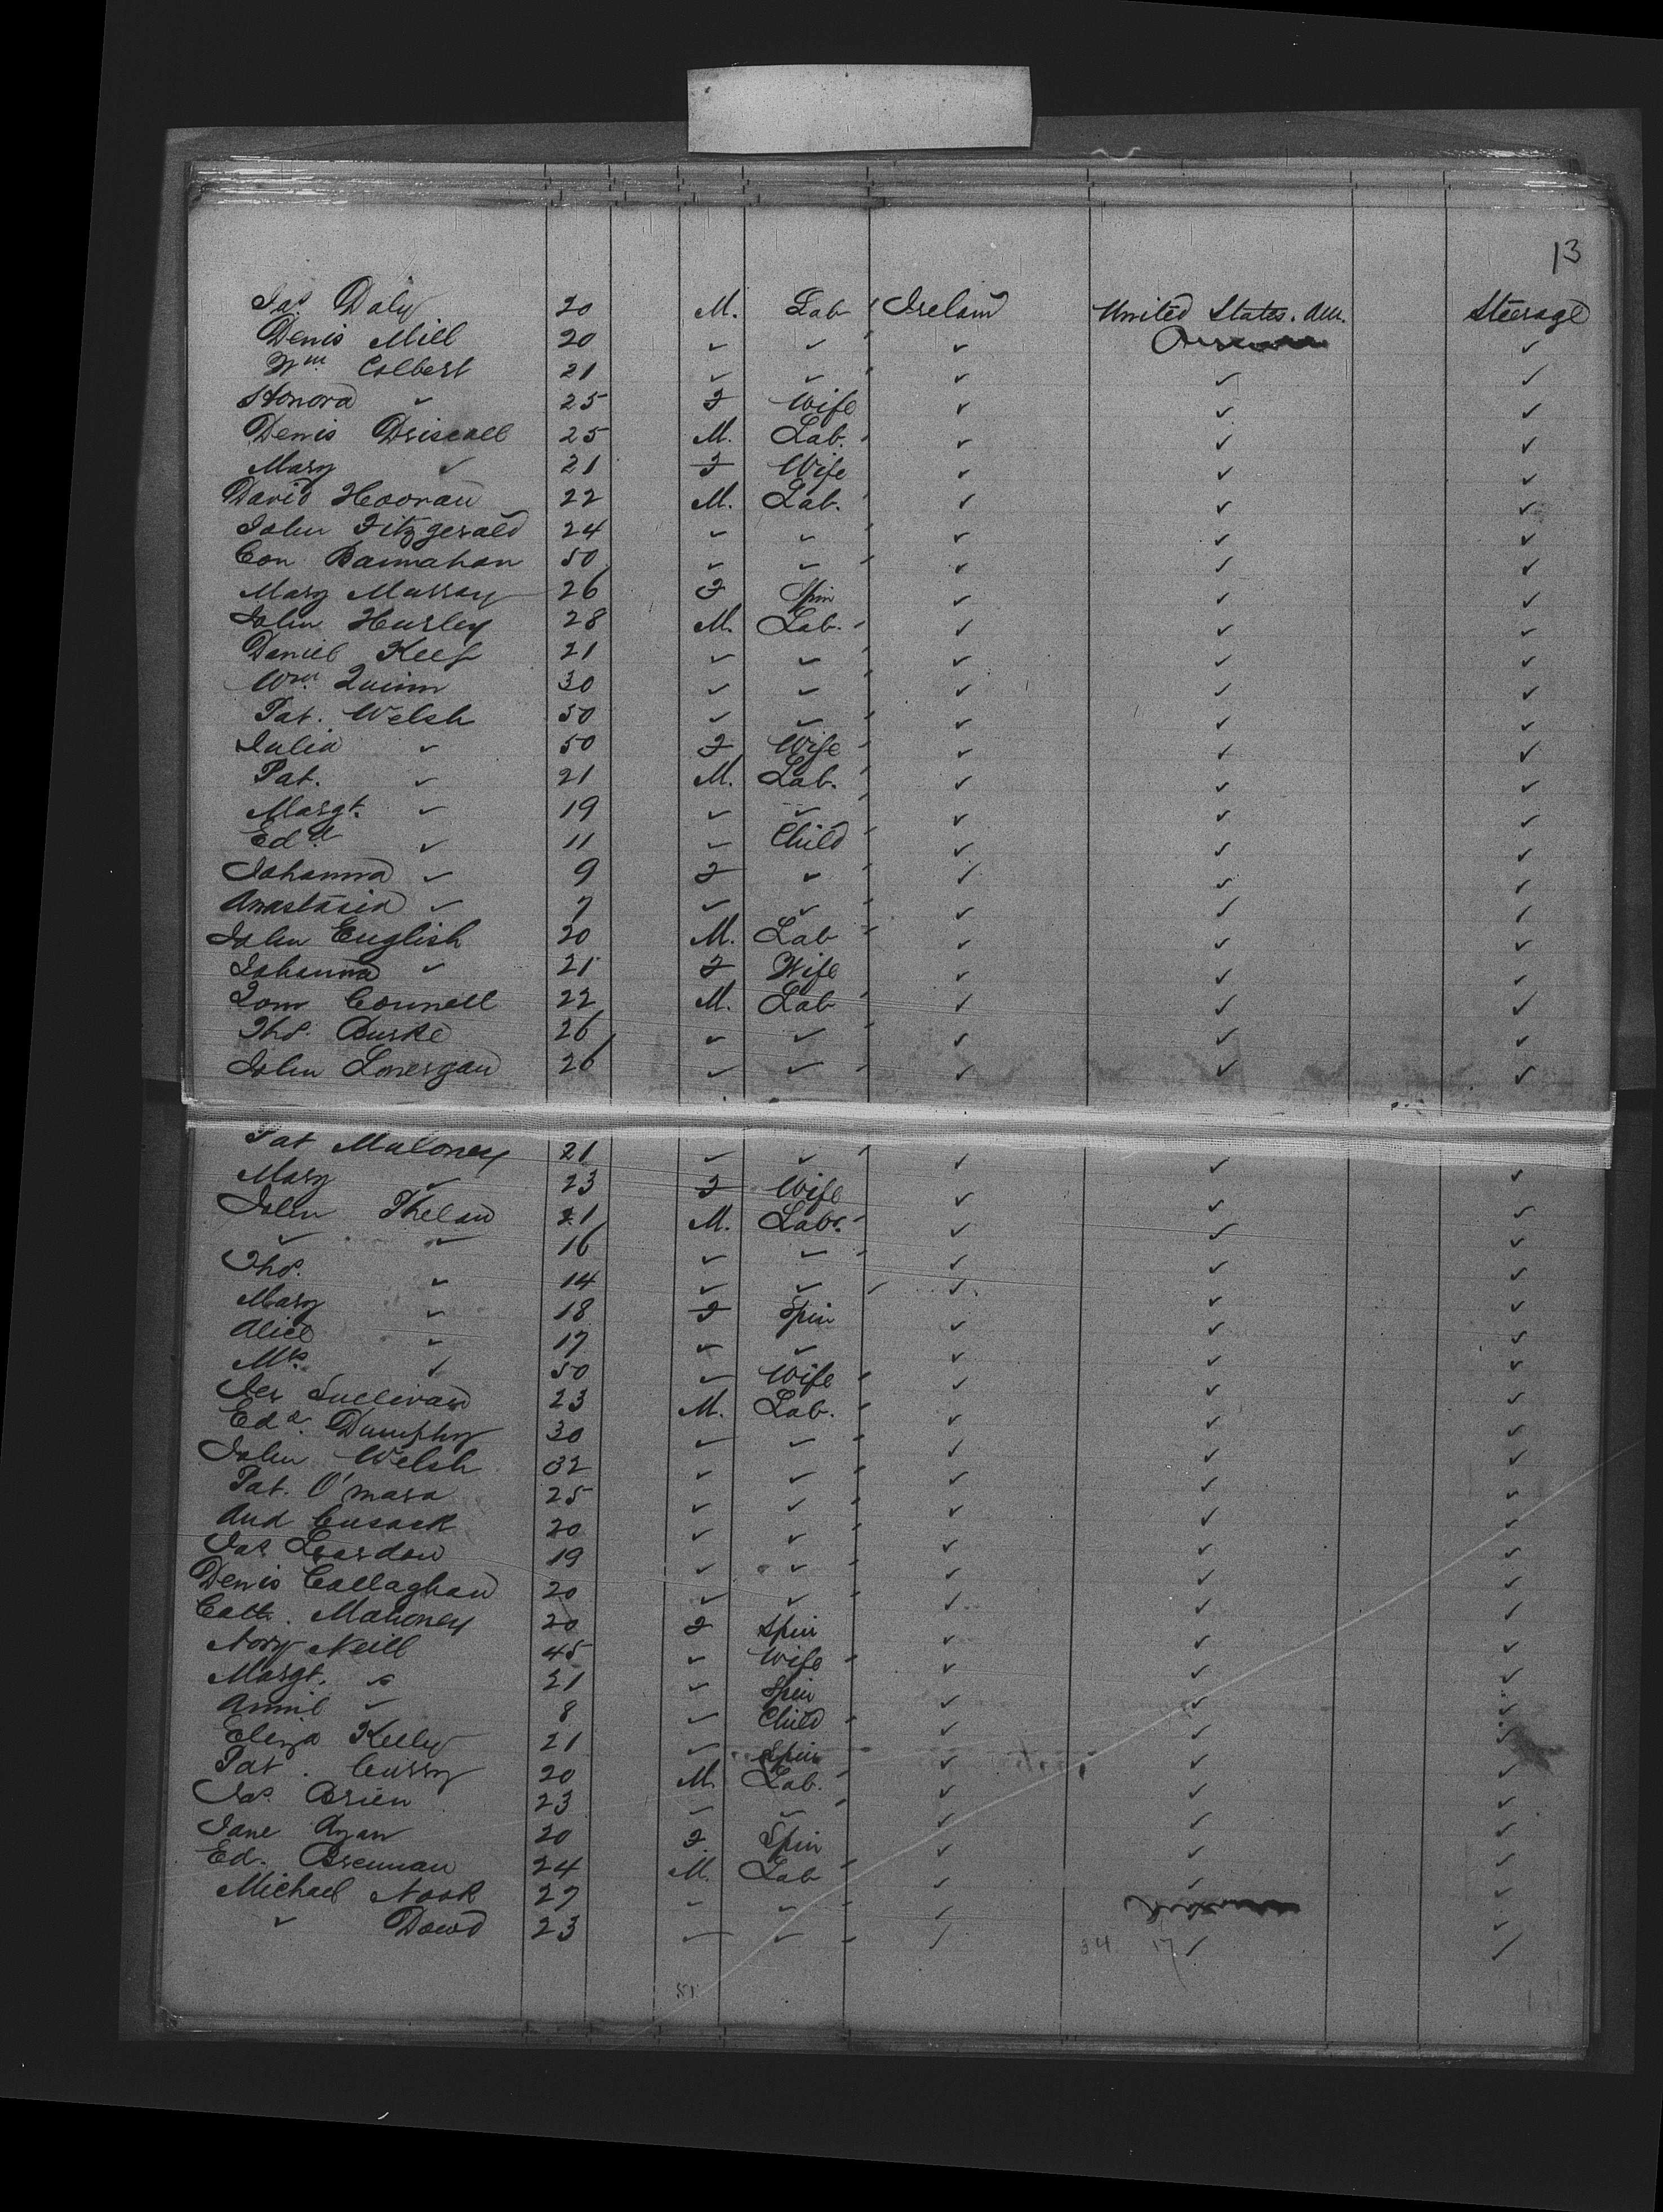 13
Jas. Daly 20 M. Lab Ireland United States. Am. Steerage
Denis Mill 20 ✓ ✓ ✓ ✓
Wm. Colbert 21 ✓ ✓ ✓ ✓ ✓
Honora ✓ 25 F Wife ✓ ✓ ✓
Denis Driscoll 25 M. Lab. ✓ ✓ ✓
Mary ✓ 21 F Wife ✓ ✓ ✓
David Hooran 22 M. Lab. ✓ ✓ ✓
John Fitzgerald 24 ✓ ✓ ✓ ✓ ✓
Con Bannahan 50 ✓ ✓ ✓ ✓ ✓
Mary Murray 26 F Spin ✓ ✓ ✓
John Hurley 28 M. Lab. ✓ ✓ ✓
Daniel Keef 21 ✓ ✓ ✓ ✓ ✓
Wm. Quinn 30 ✓ ✓ ✓ ✓ ✓
Pat. Welsh 50 ✓ ✓ ✓ ✓ ✓
Julia ✓ 50 F Wife ✓ ✓ ✓
Pat. ✓ 21 M. Lab. ✓ ✓ ✓
Margt. ✓ 19 ✓ ✓ ✓ ✓ ✓
Edd ✓ 11 ✓ Child ✓ ✓ ✓
Johanna ✓ 9 F ✓ ✓ ✓ ✓
Anastasia ✓ 7 ✓ ✓ ✓ ✓ ✓
John English 20 M. Lab ✓ ✓ ✓
Johanna ✓ 21 F Wife ✓ ✓ ✓
Tom Connell 22 M. Lab ✓ ✓ ✓
Thos. Burke 26 ✓ ✓ ✓ ✓ ✓
John Lonergan 26 ✓ ✓ ✓ ✓ ✓
Pat Maloney 21 ✓ ✓ ✓ ✓ ✓
Mary ✓ 23 F Wife ✓ ✓ ✓
John Phelan 21 M. Lab. ✓ ✓ ✓
✓ ✓ 16 ✓ ✓ ✓ ✓ ✓
Thos. ✓ 14 ✓ ✓ ✓ ✓ ✓
Mary ✓ 18 F Spin ✓ ✓ ✓
Alice ✓ 17 ✓ ✓ ✓ ✓ ✓
Mrs. ✓ 50 ✓ Wife ✓ ✓ ✓
Jer Sullivan 23 M. Lab. ✓ ✓ ✓
Edd. Dumphy 30 ✓ ✓ ✓ ✓ ✓
John Welsh 32 ✓ ✓ ✓ ✓ ✓
Pat. O'mara 25 ✓ ✓ ✓ ✓ ✓
And Cusack 20 ✓ ✓ ✓ ✓ ✓
Jas 19 ✓ ✓ ✓ ✓ ✓
Denis Callaghan 20 ✓ ✓ ✓ ✓ ✓
Cath. Mahoney 20 F Spin ✓ ✓ ✓
Neill 45 ✓ Wife ✓ ✓ ✓
Margt. ✓ 21 ✓ Spin ✓ ✓ ✓
Annie ✓ 8 ✓ Child ✓ ✓ ✓
Eliza Kelly 21 ✓ Spin ✓ ✓ ✓
Pat. Curry 20 M. Lab. ✓ ✓ ✓
Jas. Brien 23 ✓ ✓ ✓ ✓ ✓
Jane Ryan 20 F Spin ✓ ✓ ✓
Ed. Brennan 24 M. Lab ✓ ✓ ✓
Michael Nook 27 ✓ ✓ ✓ ✓
✓ Dowd 23 ✓ ✓ ✓ ✓ ✓
34 17
51